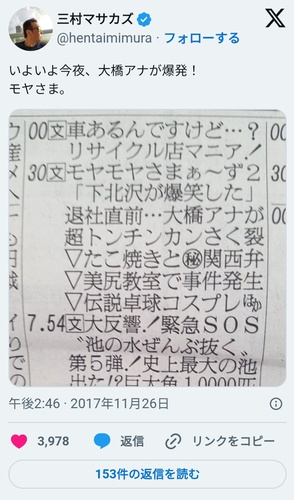 三村マサカズ
@hentaimimura · フォローする
いよいよ今夜、大橋アナが爆発！
モヤさま。
00文車あるんですけど…？
リサイクル店マニア！
30文モヤモヤさまぁ〜ず2
「下北沢が爆笑した」
退社直前…大橋アナが
超トンチンカンさく裂
▽たこ焼きと㊙関西弁
▽美尻教室で事件発生
▽伝説卓球コスプレほか
7.54文大反響！緊急ＳＯＳ
〝池の水ぜんぶ抜く〟
第５弾！史上最大の池
出た!?巨大魚10000匹
午後2:46 · 2017年11月26日
3,978 返信 リンクをコピー
153件の返信を読む